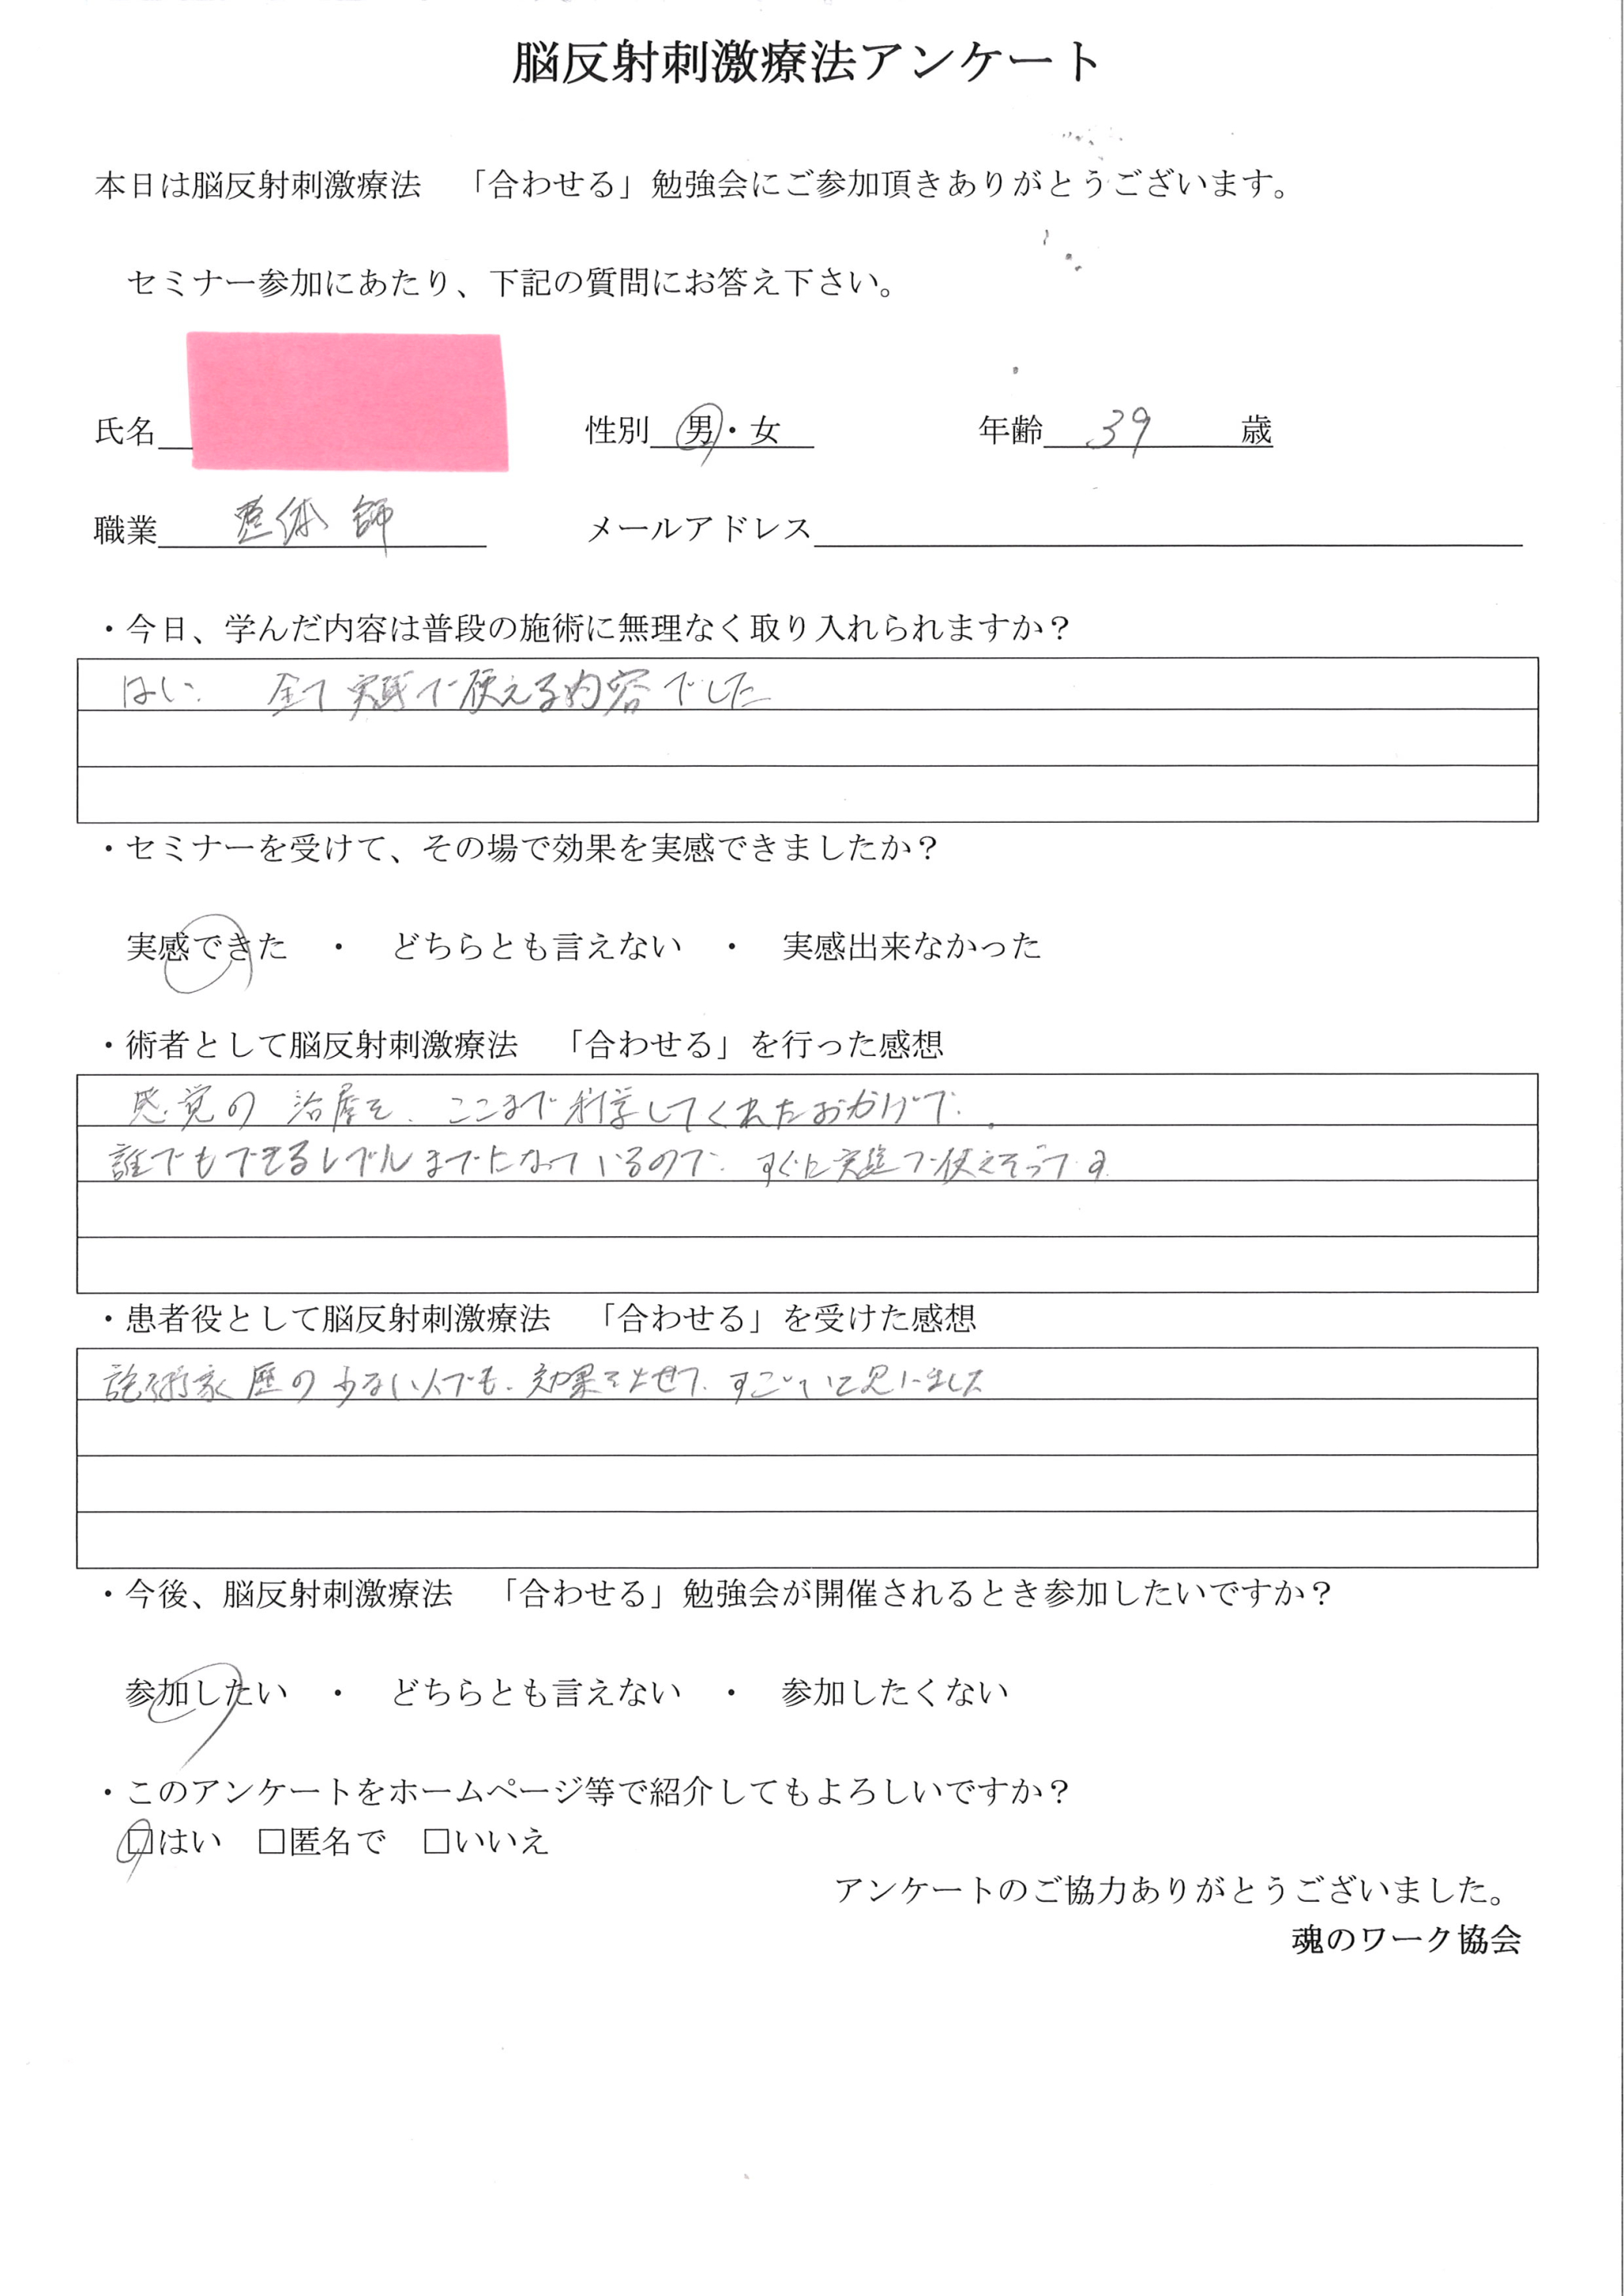 脳反射刺激療法アンケート
本日は脳反射刺激療法　「合わせる」勉強会にご参加頂きありがとうございます。
セミナー参加にあたり、下記の質問にお答え下さい。
氏名　性別　男・女　年齢　39　歳
職業　整体師　メールアドレス
・今日、学んだ内容は普段の施術に無理なく取り入れられますか？
はい、全て実践で使える内容でした
・セミナーを受けて、その場で効果を実感できましたか？
実感できた　・　どちらとも言えない　・　実感出来なかった
・術者として脳反射刺激療法　「合わせる」を行った感想
感覚の治を、ここまで科学してくれたおかげで、
誰でもできるレベルまでになっているので、すぐに実践で使えそうです
・患者役として脳反射刺激療法　「合わせる」を受けた感想
施術家歴の少ない人でも、効果を出せて、すごいと思いました
・今後、脳反射刺激療法　「合わせる」勉強会が開催されるとき参加したいですか？
参加したい　・　どちらとも言えない　・　参加したくない
・このアンケートをホームページ等で紹介してもよろしいですか？
□はい　□匿名で　□いいえ
アンケートのご協力ありがとうございました。
魂のワーク協会